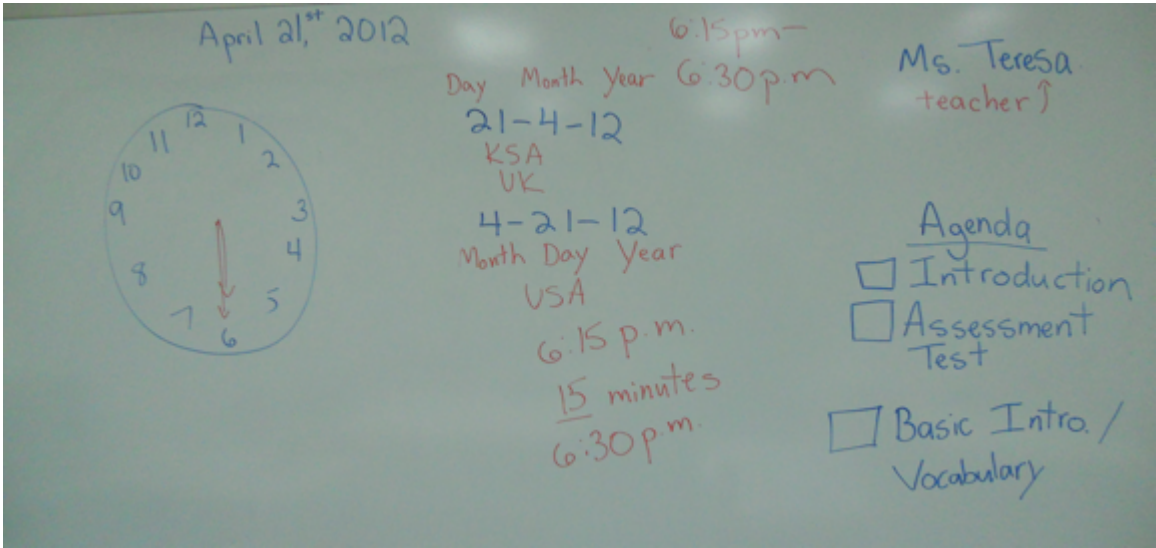 April 21,st 2012
12
11
1
10
2
9
3
8
4
7
5
6
6:15pm-
6:30p.m
Day Month Year
21-4-12
KSA
UK
4-21-12
Month Day Year
USA
6:15 p.m.
15 minutes
6:30p.m.
Ms. Teresa
teacher↑
Agenda
Introduction
Assessment
Test
Basic Intro./
Vocabulary